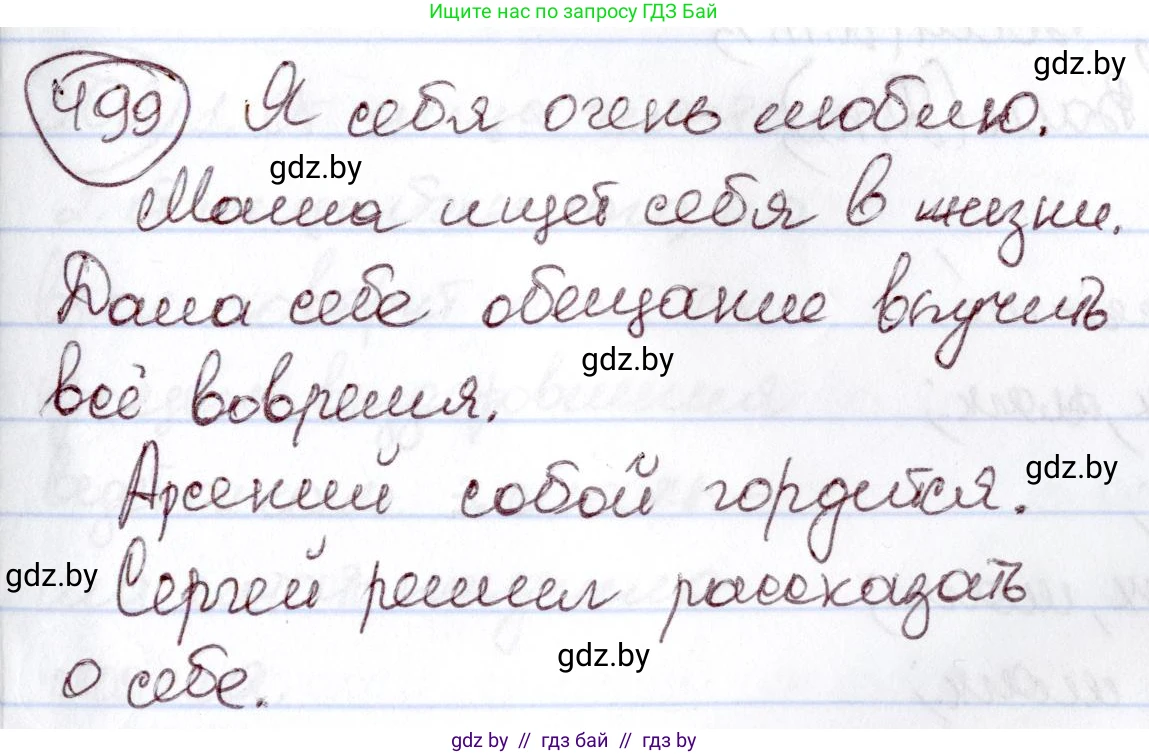 Ищите нас по запросу ГДЗ Бай
gdz.by
499 Я себя очень люблю.
gdz.by
Маша ищет себя в жизни.
Дала себе обещание выучить
gdz.by
всё вовремя.
gdz.by
Арсений собой гордится.
gdz.by
Сергей решил рассказать
gdz.by
о себе.
gdz.by // гдз бай // гдз by